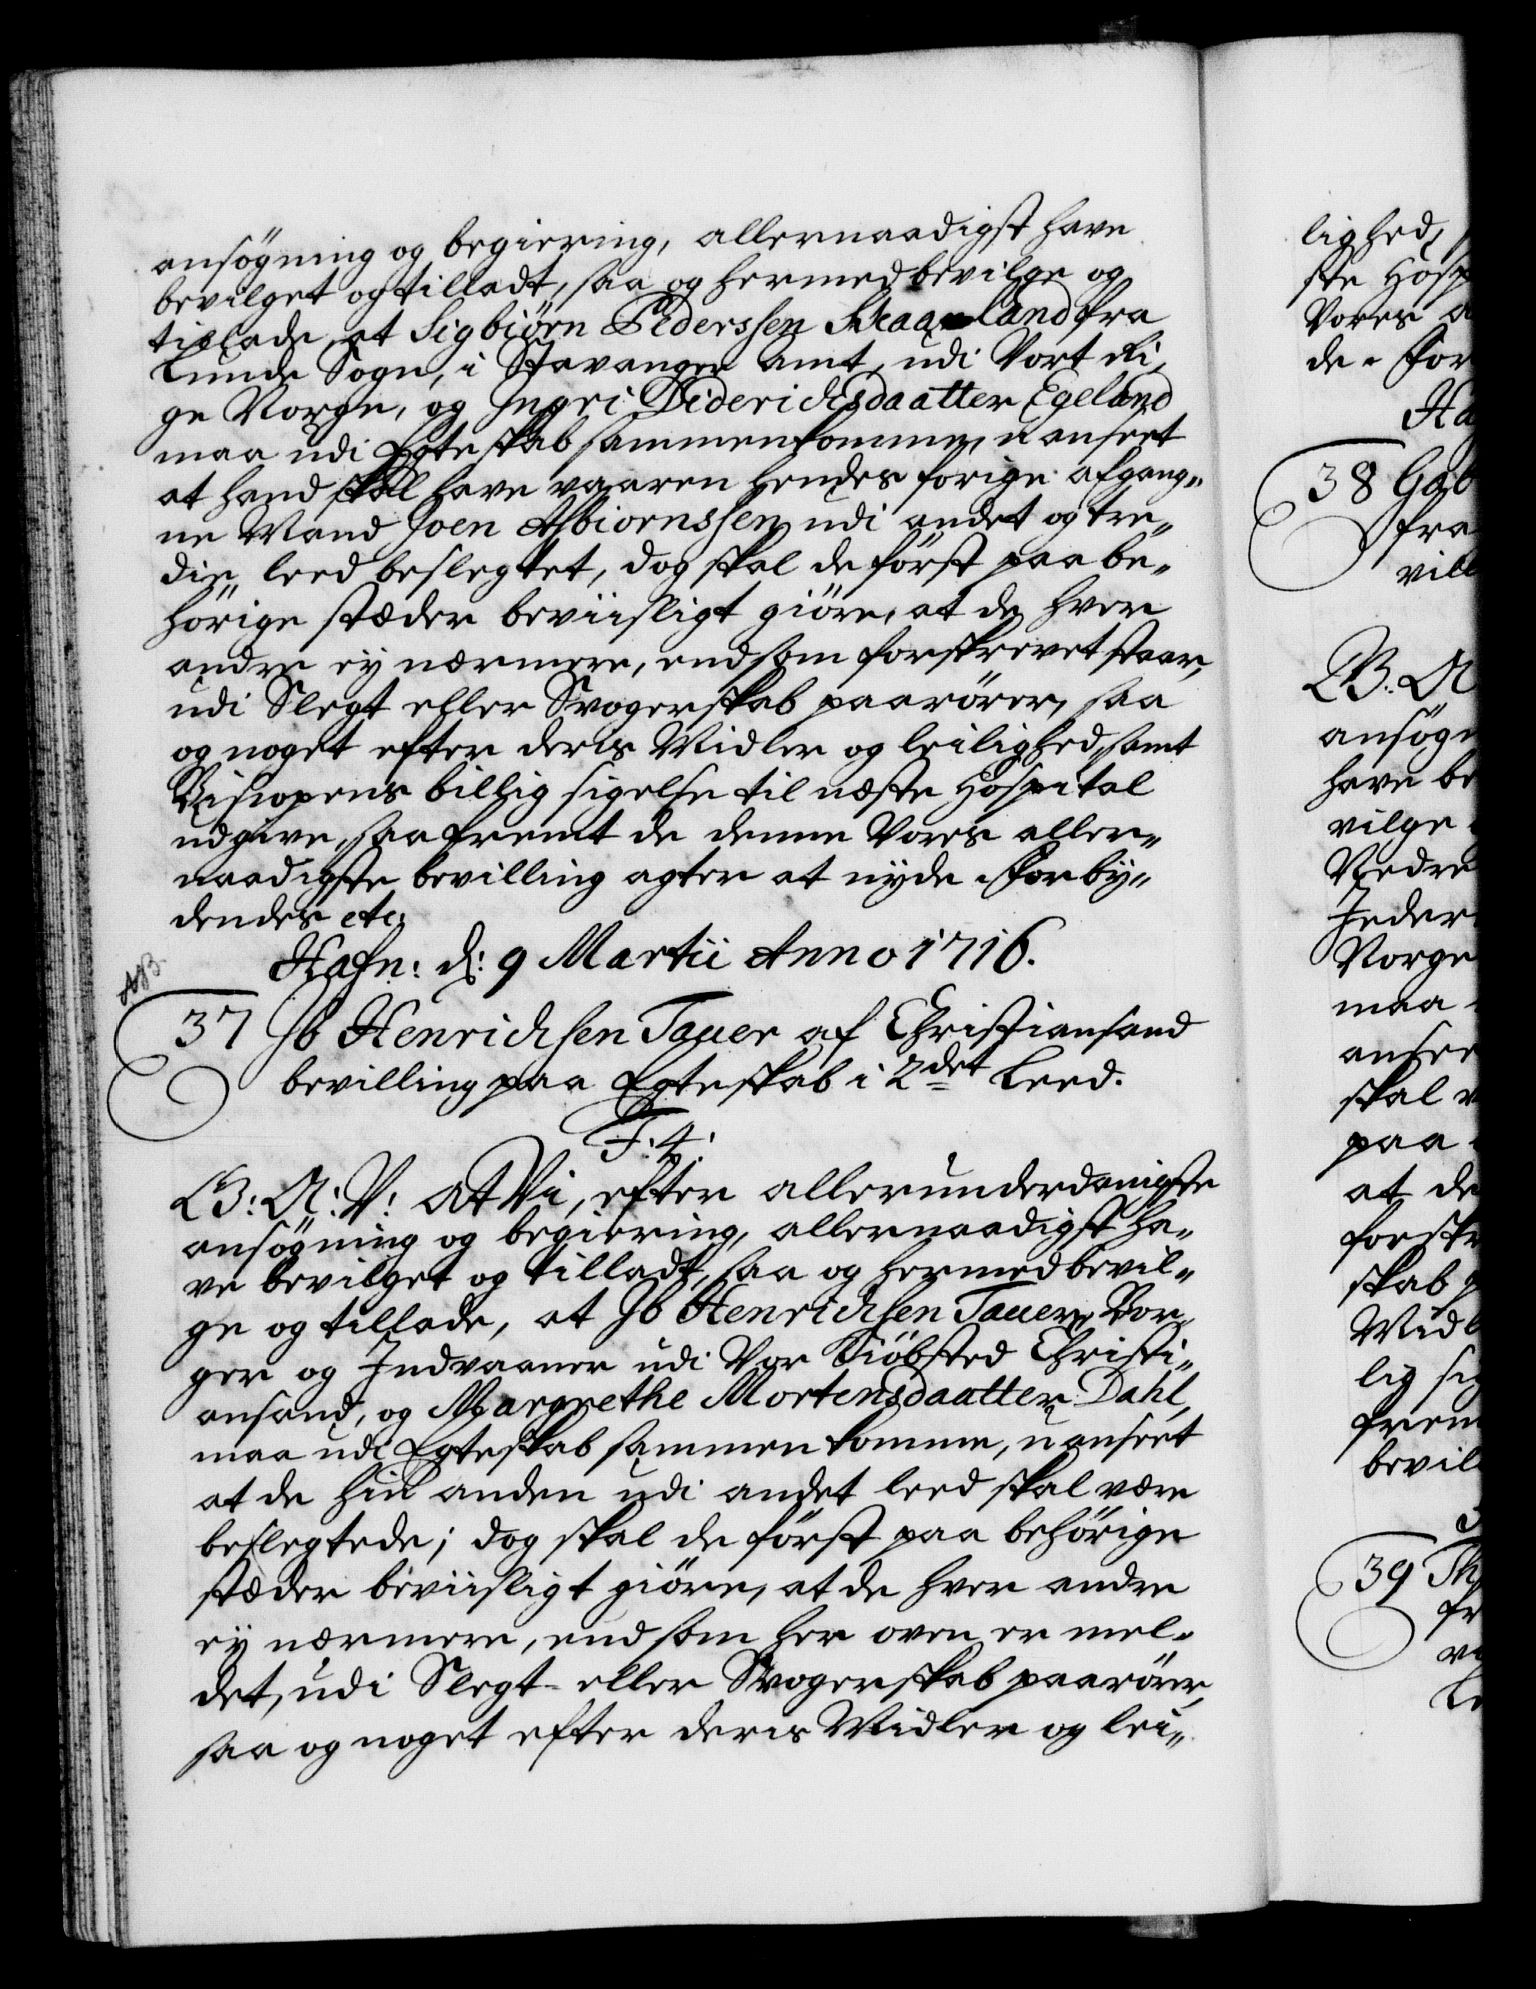 ansøgning og begiering, allernaadigst have
bevilget og tilladt, saa og hermed bevilge og
tillade, at Sigbiørn Pederssen Skaanland fra
Lunde Sogn, i Stavanger Amt, udi Vort Ri„
ge Norge, og Ingri Diderichsdaatter Egeland
maa udi Egteskab sammenkomme, uanseet
at hand skal have vaaren hendes forige afgang„
ne Mand Joen Asbiornssen udi andet og tre„
die leed beslegtet, dog skal de først paa be„
hørige stæder beviisligt giøre, at de hver
andre ey nærmere, end som forskrevet staar,
udi Slegt eller Svogerskab paarører, saa
og noget efter deris Midler og leilighed, samt
Biscopens billig sigelse til næste Hospital
udgive, saafremt de denne Vores aller„
naadigste bevilling agter at nyde. Forby„
dendes etc:
Hafn: d: 9 Martii Anno 1716.
NB.
37 Ib Henrichsen Tauer af Christiansand
bevilling paa Egteskab i 2det Leed.
F: 4:
G: A: V: At Vi, efter allerunderdanigste
ansøgning og begiering, allernaadigst ha„
ve bevilget og tilladt, saa og hermed bevil„
ge og tillade, at Ib Henrichsen Tauer, Bor„
ger og Indvaaner udi Vor Kiøbsted Christi„
ansand, og Margrethe Mortensdaatter Dahl,
maa udi Egteskab sammen komme, uanseet
at de hin anden udi andet leed skal være
beslegtede; dog skal de først paa behørige
stæder beviisligt giøre, at de hver andre
ey nærmere, end som her oven er mel„
det, udi Slegt eller Svogerskab paarører,
saa og noget efter deris Midler og lei„
lighed,
ste Hosp
Vores a
de. For
Ha
38 Gab
fra
vill
G: A
ansøgn
have be
vilge
Nedre
Jeder
Norge
maa
ansee
skal v
paa
at de
forskr
skab
Midl
lig sig
frem
bevil
39 Th
fr